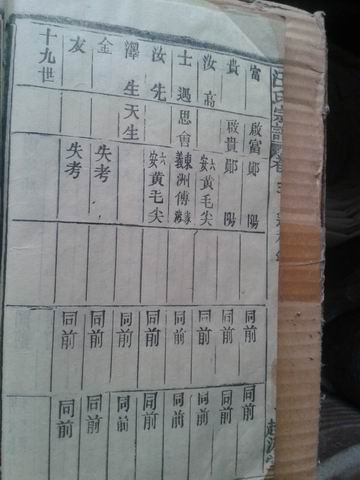 氏宗譜卷
富 啟富 鄖陽 同前 同前
貴 啟貴 鄖陽 同前 同前
汝高 六安黃毛尖 同前 同前
士遇 思會 東洲傳 同前 同前
汝先 六安黃毛尖 同前 同前
澤生 天生 同前 同前
金 失考 同前 同前
友 失考 同前 同前
十九世